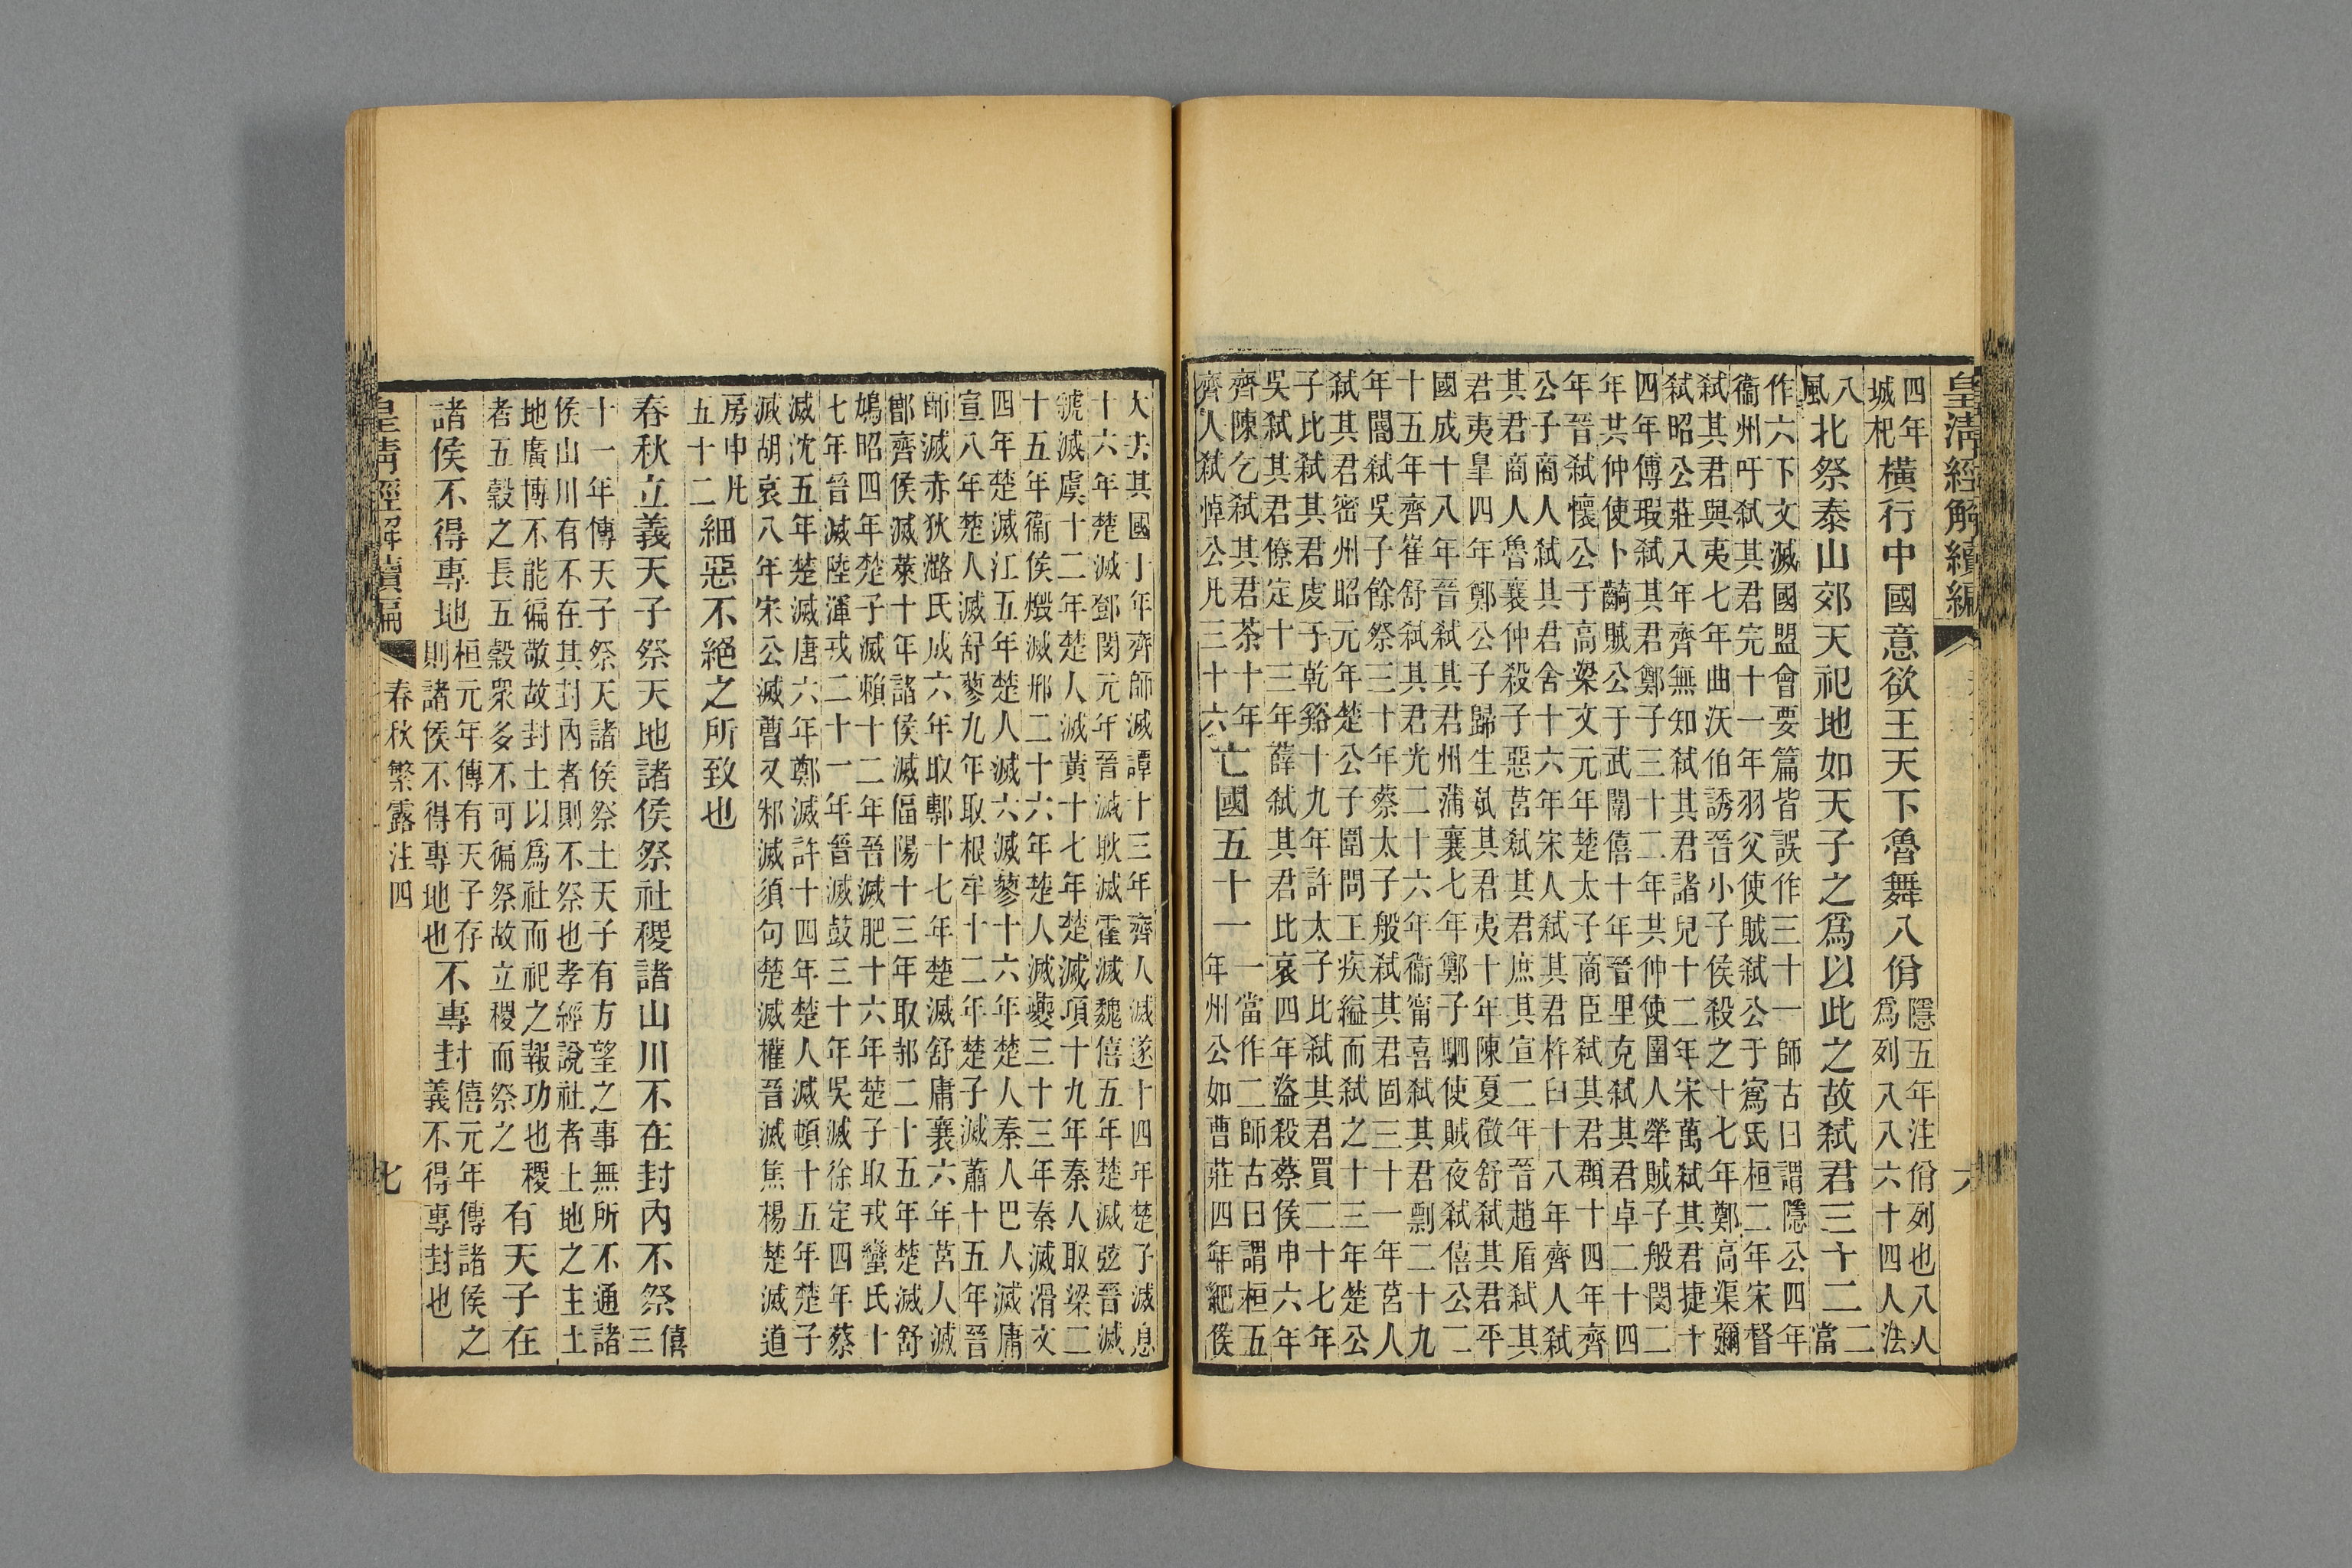 皇清經解續編
六
四年
城杞
橫行中國意欲王天下魯舞八佾
隱五年注佾列也八人
爲列八八六十四人法
八
風
北祭泰山郊天祀地如天子之爲以此之故弑君三十二
二
當
作六下文滅國盟會要篇皆誤作三十一師古曰謂隱公四年
衞州吁弑其君完十一年羽父使賊弑公于寪氏桓二年宋督
弑其君與夷七年曲沃伯誘晉小子侯殺之十七年鄭高渠彌
弑昭公莊八年齊無知弑其君諸兒十二年宋萬弑其君捷十
四年傅瑕弑其君鄭子三十二年共仲使圉人犖賊子般閔二
年共仲使卜齮賊公于武闈僖十年晉里克弑其君卓二十四
年晉弑懷公于高梁文元年楚太子商臣弑其君頵十四年齊
公子商人弑其君舍十六年宋人弑其君杵臼十八年齊人弑
其君商人魯襄仲殺子惡莒弑其君庶其宣二年晉趙盾弑其
君夷皐四年鄭公子歸生弑其君夷十年陳夏徵舒弑其君平
國成十八年晉弑其君州蒲襄七年鄭子駟使賊夜弑僖公二
十五年齊崔舒弑其君光二十六年衞甯喜弑其君剽二十九
年閽弑吳子餘祭三十年蔡太子般弑其君固三十一年莒人
弑其君密州昭元年楚公子圍問王疾縊而弑之十三年楚公
子比弑其君虔于乾谿十九年許太子比弑其君買二十七年
吳弑其君僚定十三年薛弑其君比哀四年盜殺蔡侯申六年
齊陳乞弑其君荼十年
齊人弑悼公凡三十六
亡國五十一
一當作二師古曰謂桓五
年州公如曹莊四年紀侯
大去其國十年齊師滅譚十三年齊人滅遂十四年楚子滅息
十六年楚滅鄧閔元年晉滅耿滅霍滅魏僖五年楚滅弦晉滅
虢滅虞十二年楚人滅黃十七年楚滅項十九年秦人取梁二
十五年衞侯燬滅邢二十六年楚人滅夔三十三年秦滅滑文
四年楚滅江五年楚人滅六滅蓼十六年楚人秦人巴人滅庸
宣八年楚人滅舒蓼九年取根牟十二年楚子滅蕭十五年晉
師滅赤狄潞氏成六年取鄟十七年楚滅舒庸襄六年莒人滅
鄫齊侯滅萊十年諸侯滅偪陽十三年取邿二十五年楚滅舒
鳩昭四年楚子滅賴十二年晉滅肥十六年楚子取戎蠻氏十
七年晉滅陸渾戎二十一年晉滅鼓三十年吳滅徐定四年蔡
滅沈五年楚滅唐六年鄭滅許十四年楚人滅頓十五年楚子
滅胡哀八年宋公滅曹又邾滅須句楚滅權晉滅焦楊楚滅道
房申凡
五十二
細惡不絕之所致也
春秋立義天子祭天地諸侯祭社稷諸山川不在封內不祭
僖
三
十一年傳天子祭天諸侯祭土天子有方望之事無所不通諸
侯山川有不在其封內者則不祭也孝經說社者土地之主土
地廣博不能徧敬故封土以爲社而祀之報功也稷
者五穀之長五穀眾多不可徧祭故立稷而祭之
有天子在
諸侯不得專地
桓元年傳有天子存
則諸侯不得專地也
不專封
僖元年傳諸侯之
義不得專封也
皇清經解續編
春秋繁露注四
七